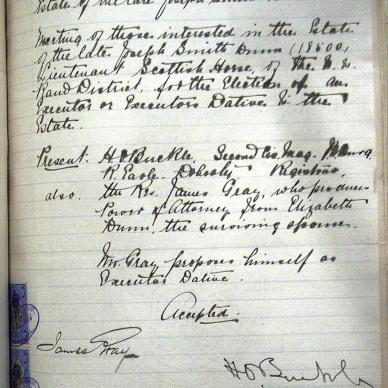 Estate of the late Joseph Smith
Meeting of those interested in the Estate
of the late Joseph Smith Dunn (18600,
Lieutenant Scottish Horse, of the
Rand District, for the Election of an
Executor or Executors Dative to the
Estate.
Present: H O Buckle, Second Civ. Mag.
R. Registrar,
also. the Rev. James Gray, who produces
Power of Attorney from Elizabeth
Dunn, the surviving spouse.
Mr. Gray proposes himself as
Executor Dative.
Accepted.
James Gray
H O Buckle